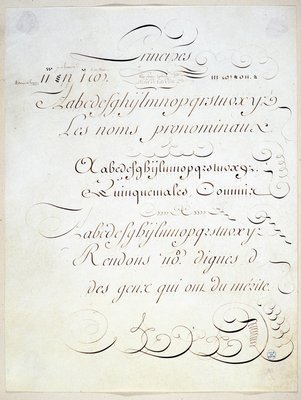 Principes
Aabcdefghijlmnopqrstuvxyz
Les noms pronominaux.
Aabcdefghijlmnopqrstuvxyz.
Quinquennales. Domin
Aabcdefghijlmnopqrstuvxyz
Rendons nos. dignes d
des gens qui ont du mérite.